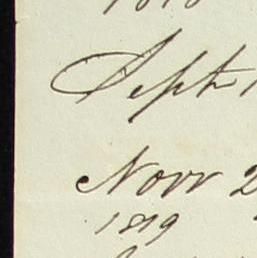 Sept 1
Novr 2
1819